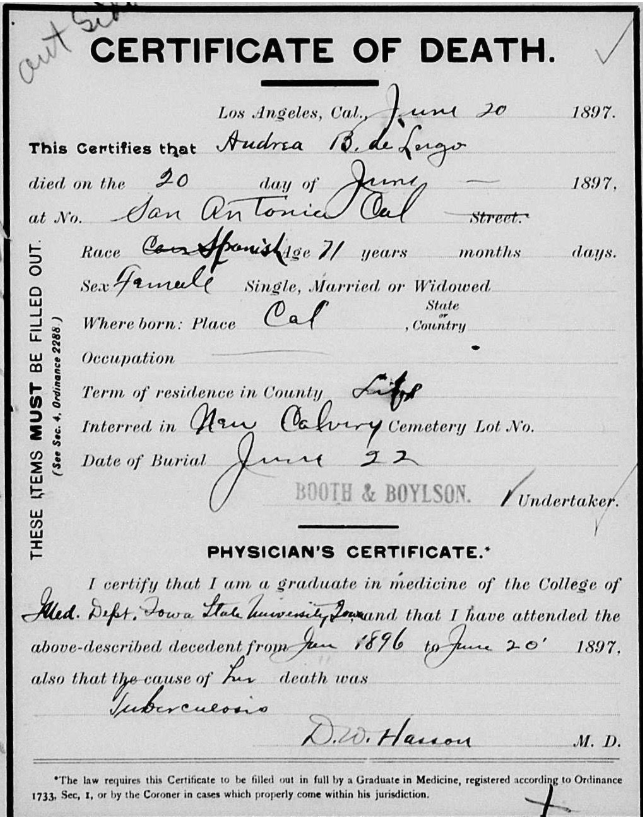 out side
CERTIFICATE OF DEATH.
Los Angeles, Cal., June 20 1897.
This Certifies that Andrea B. de Lugo
died on the 20 day of June — 1897,
at No. San Antonio Cal Street.
Race Spanish Age 71 years months days.
Sex Female Single, Married or Widowed
Where born: Place Cal , State or Country
Occupation
Term of residence in County Life
Interred in New Calvery Cemetery Lot No.
Date of Burial June 22
BOOTH & BOYLSON. Undertaker.
THESE ITEMS MUST BE FILLED OUT.
(See Sec. 4, Ordinance 2288.)
PHYSICIAN'S CERTIFICATE.*
I certify that I am a graduate in medicine of the College of
Med. Dept. Iowa State University, Iowa and that I have attended the
above-described decedent from Jan 1896 to June 20 1897,
also that the cause of her death was
Tuberculosis
D. W. Hasson M. D.
*The law requires this Certificate to be filled out in full by a Graduate in Medicine, registered according to Ordinance
1733, Sec, 1, or by the Coroner in cases which properly come within his jurisdiction.